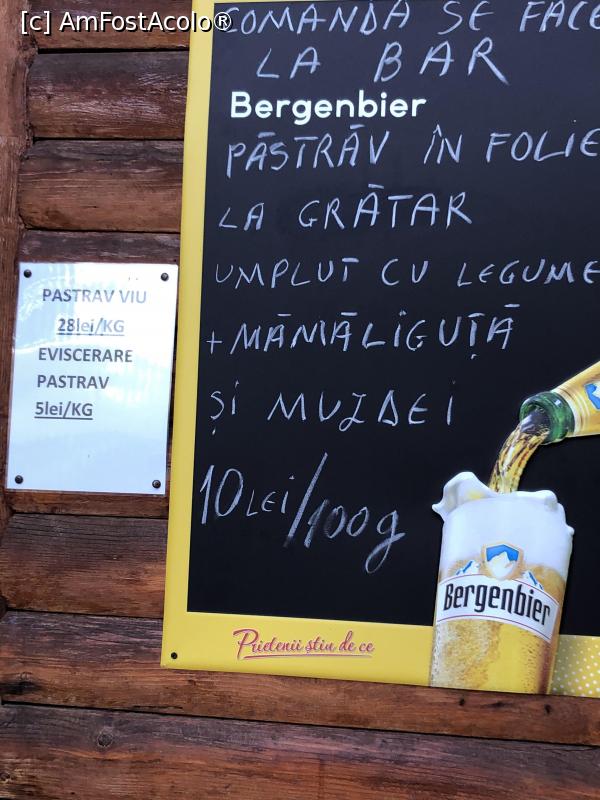 [c] AmFostAcolo®
COMANDA SE FACE
LA BAR
Bergenbier
PĂSTRĂV ÎN FOLIE
LA GRĂTAR
UMPLUT CU LEGUME
+ MĂMĂLIGUȚĂ
ȘI MUJDEI
10 LEI/100g
PASTRAV VIU
28lei/KG
EVISCERARE
PASTRAV
5lei/KG
Bergenbier
Prietenii știu de ce